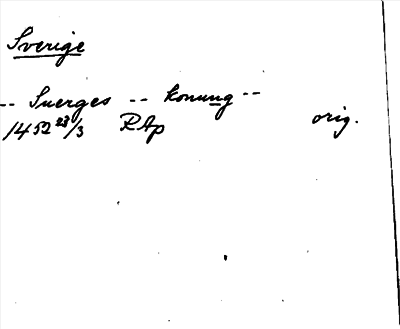 Sverige
-- Suerges -- konung --
1452 23/3 RAp orig.